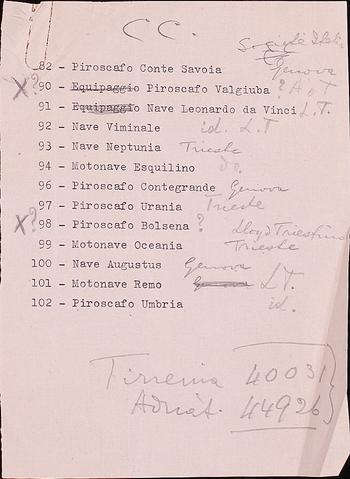 C C.
82 - Piroscafo Conte Savoia
Genova
X? 90 - Equipaggio Piroscafo Valgiuba ?
91 - Equipaggio Nave Leonardo da Vinci L.T.
92 - Nave Viminale id. L.T
93 - Nave Neptunia Trieste
94 - Motonave Esquilino Do.
96 - Piroscafo Contegrande Genova
97 - Piroscafo Urania Trieste
X? 98 - Piroscafo Bolsena ? Lloyd Triestino
99 - Motonave Oceania Trieste
100 - Nave Augustus Genova
101 - Motonave Remo Genova L.T.
102 - Piroscafo Umbria id.
Tirrenia 40031
Adriat. 44926